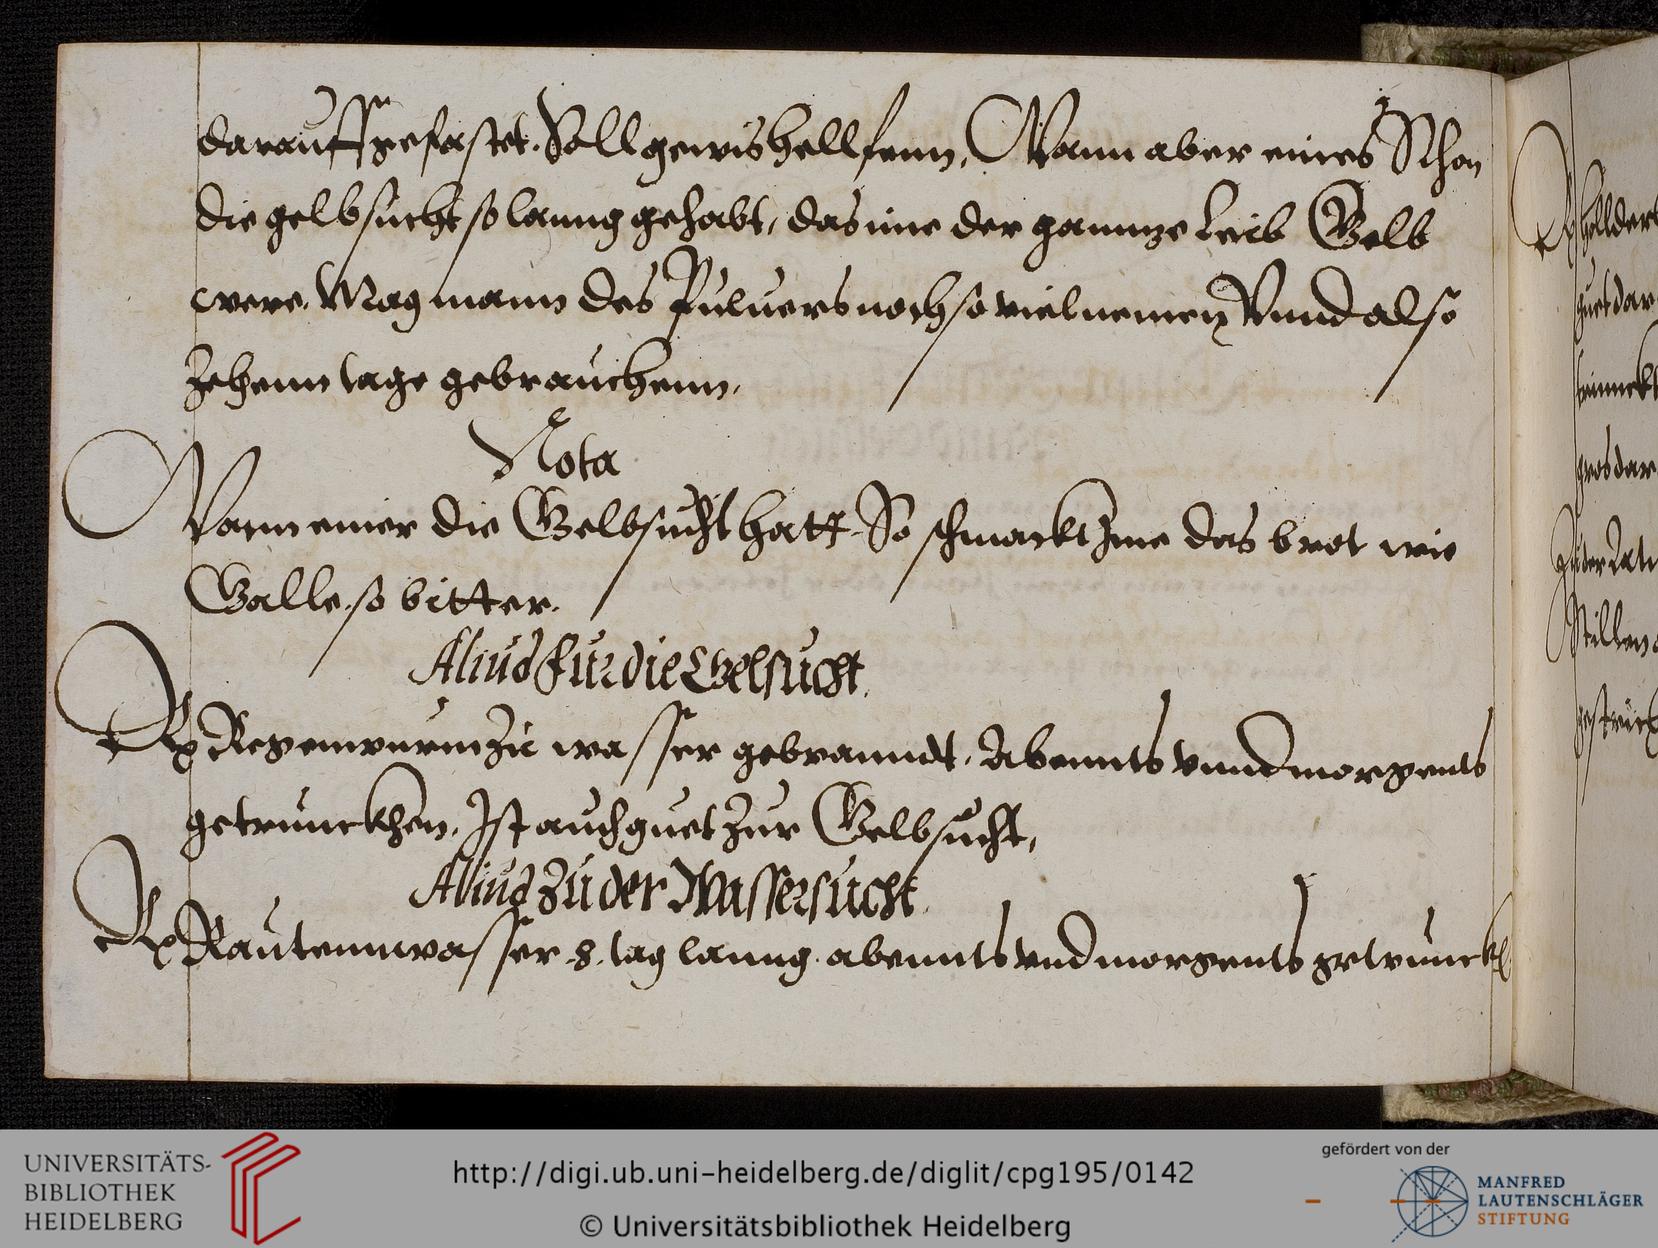 darauff gefastet. Soll gewis hellfenn, Wann aber eines Schon
die gelbsucht so lanng gehabt, das ime der gannze Leib Gelb
were. Mag mann des Puluers noch so viel nemen Vnnd also
Zehenn tage gebrauchenn,
Nota
Wann einer die Gelbsucht hatt. So schmackt Ime das brot wie
Galle so bitter.
Aliud Fur die Gelsucht.
Rp Regenwurm Zu wasser gebranndt, Abennts vnnd morgents
getrunckhen, Ist auch guet Zur Gelbsucht,
Aliud Zu der Wassersucht.
Rp Rautennwasser .8. tag lanng abennts vnd morgents getrunckh
Rp
guet dar
gros dar
Stillen
UNIVERSITÄTS-
BIBLIOTHEK
HEIDELBERG
http://digi.ub.uni-heidelberg.de/diglit/cpg195/0142
© Universitätsbibliothek Heidelberg
gefördert von der
MANFRED
LAUTENSCHLÄGER
STIFTUNG